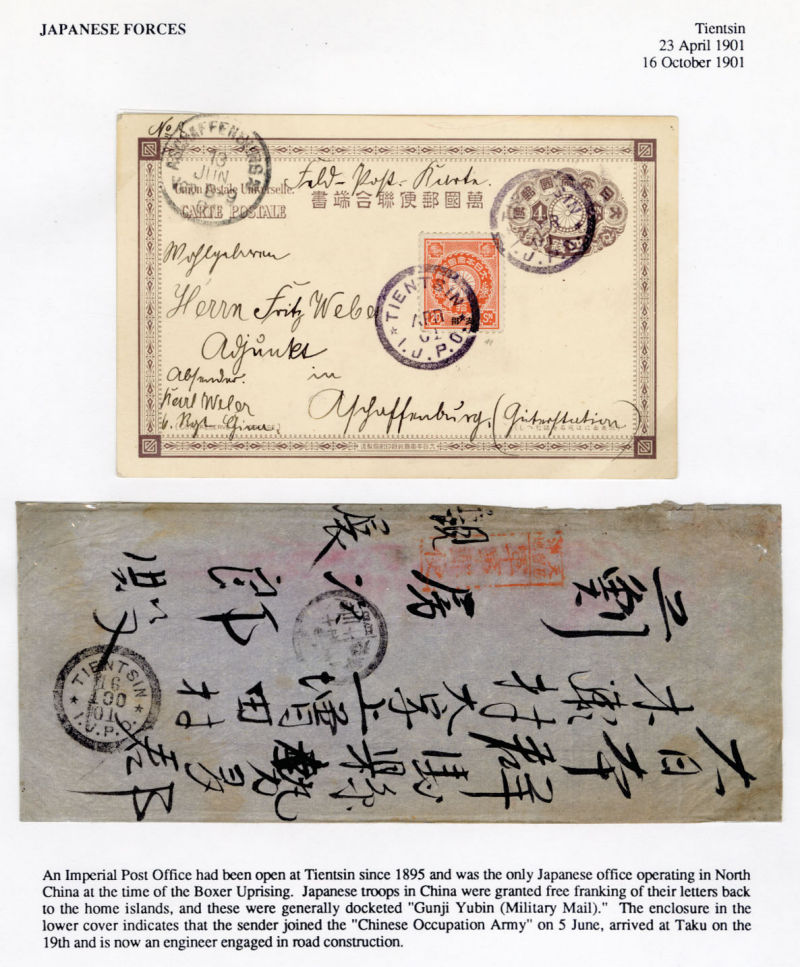 JAPANESE FORCES
Tientsin
23 April 1901
16 October 1901
No
ASCHAFFENBURG
13
JUN
Union Postale Universelle.
CARTE POSTALE
Feld-Post-Karte.
萬國郵便聯合端書
大日本帝國郵便
4
I.J.P.O.
TIENTSIN
01
I.J.P.O.
20 SN
Wohlgeboren
Herrn Fritz Weber
Adjunkt
in
Aschaffenburg, (Güterstation)
Absender:
Karl Weber
6. Rgt.
大日本帝國政府印刷局製造
大日本
群馬県
勢多郡
木瀬村大字
上増田村
TIENTSIN
16
01
I.J.P.O.
An Imperial Post Office had been open at Tientsin since 1895 and was the only Japanese office operating in North
China at the time of the Boxer Uprising. Japanese troops in China were granted free franking of their letters back
to the home islands, and these were generally docketed "Gunji Yubin (Military Mail)." The enclosure in the
lower cover indicates that the sender joined the "Chinese Occupation Army" on 5 June, arrived at Taku on the
19th and is now an engineer engaged in road construction.